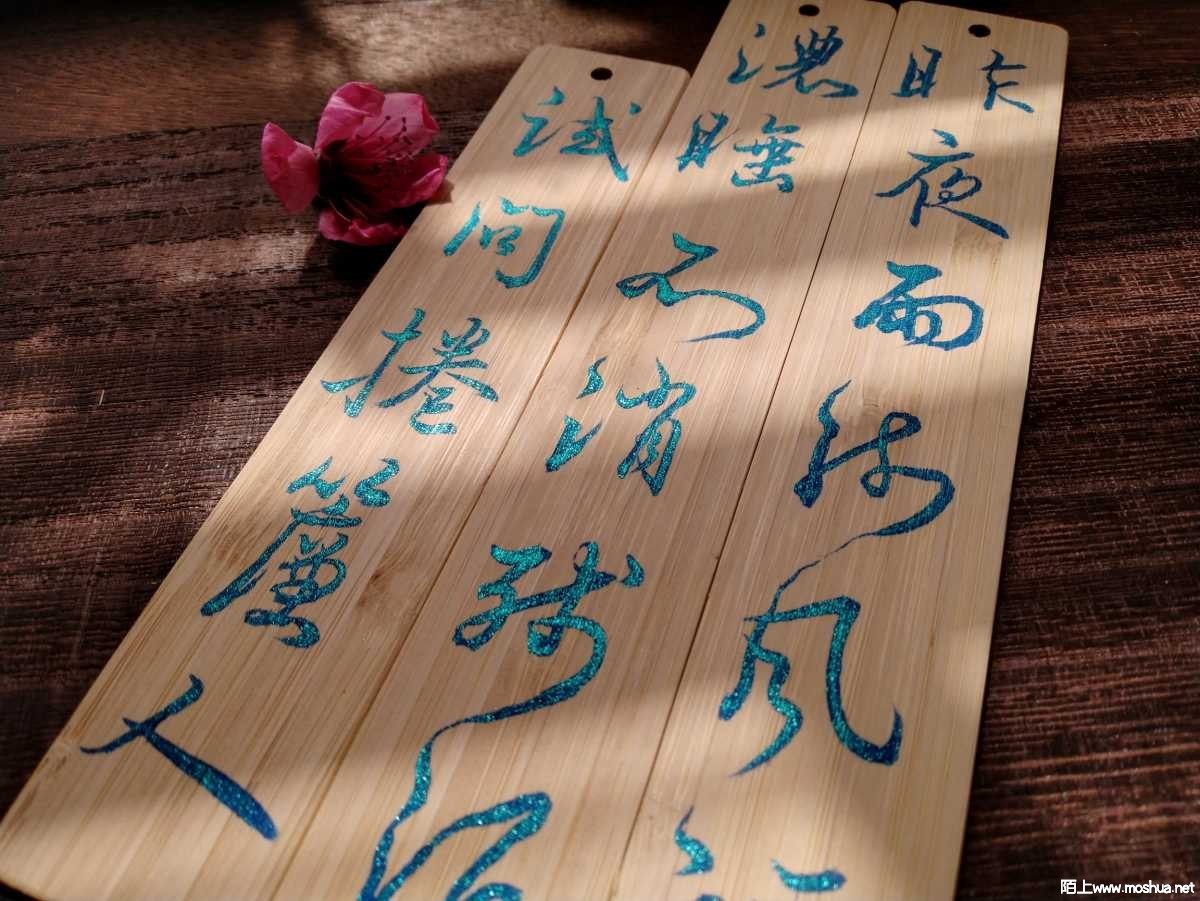 昨夜雨疏风
濃睡不消残
试问捲簾人
陌上www.moshua.net